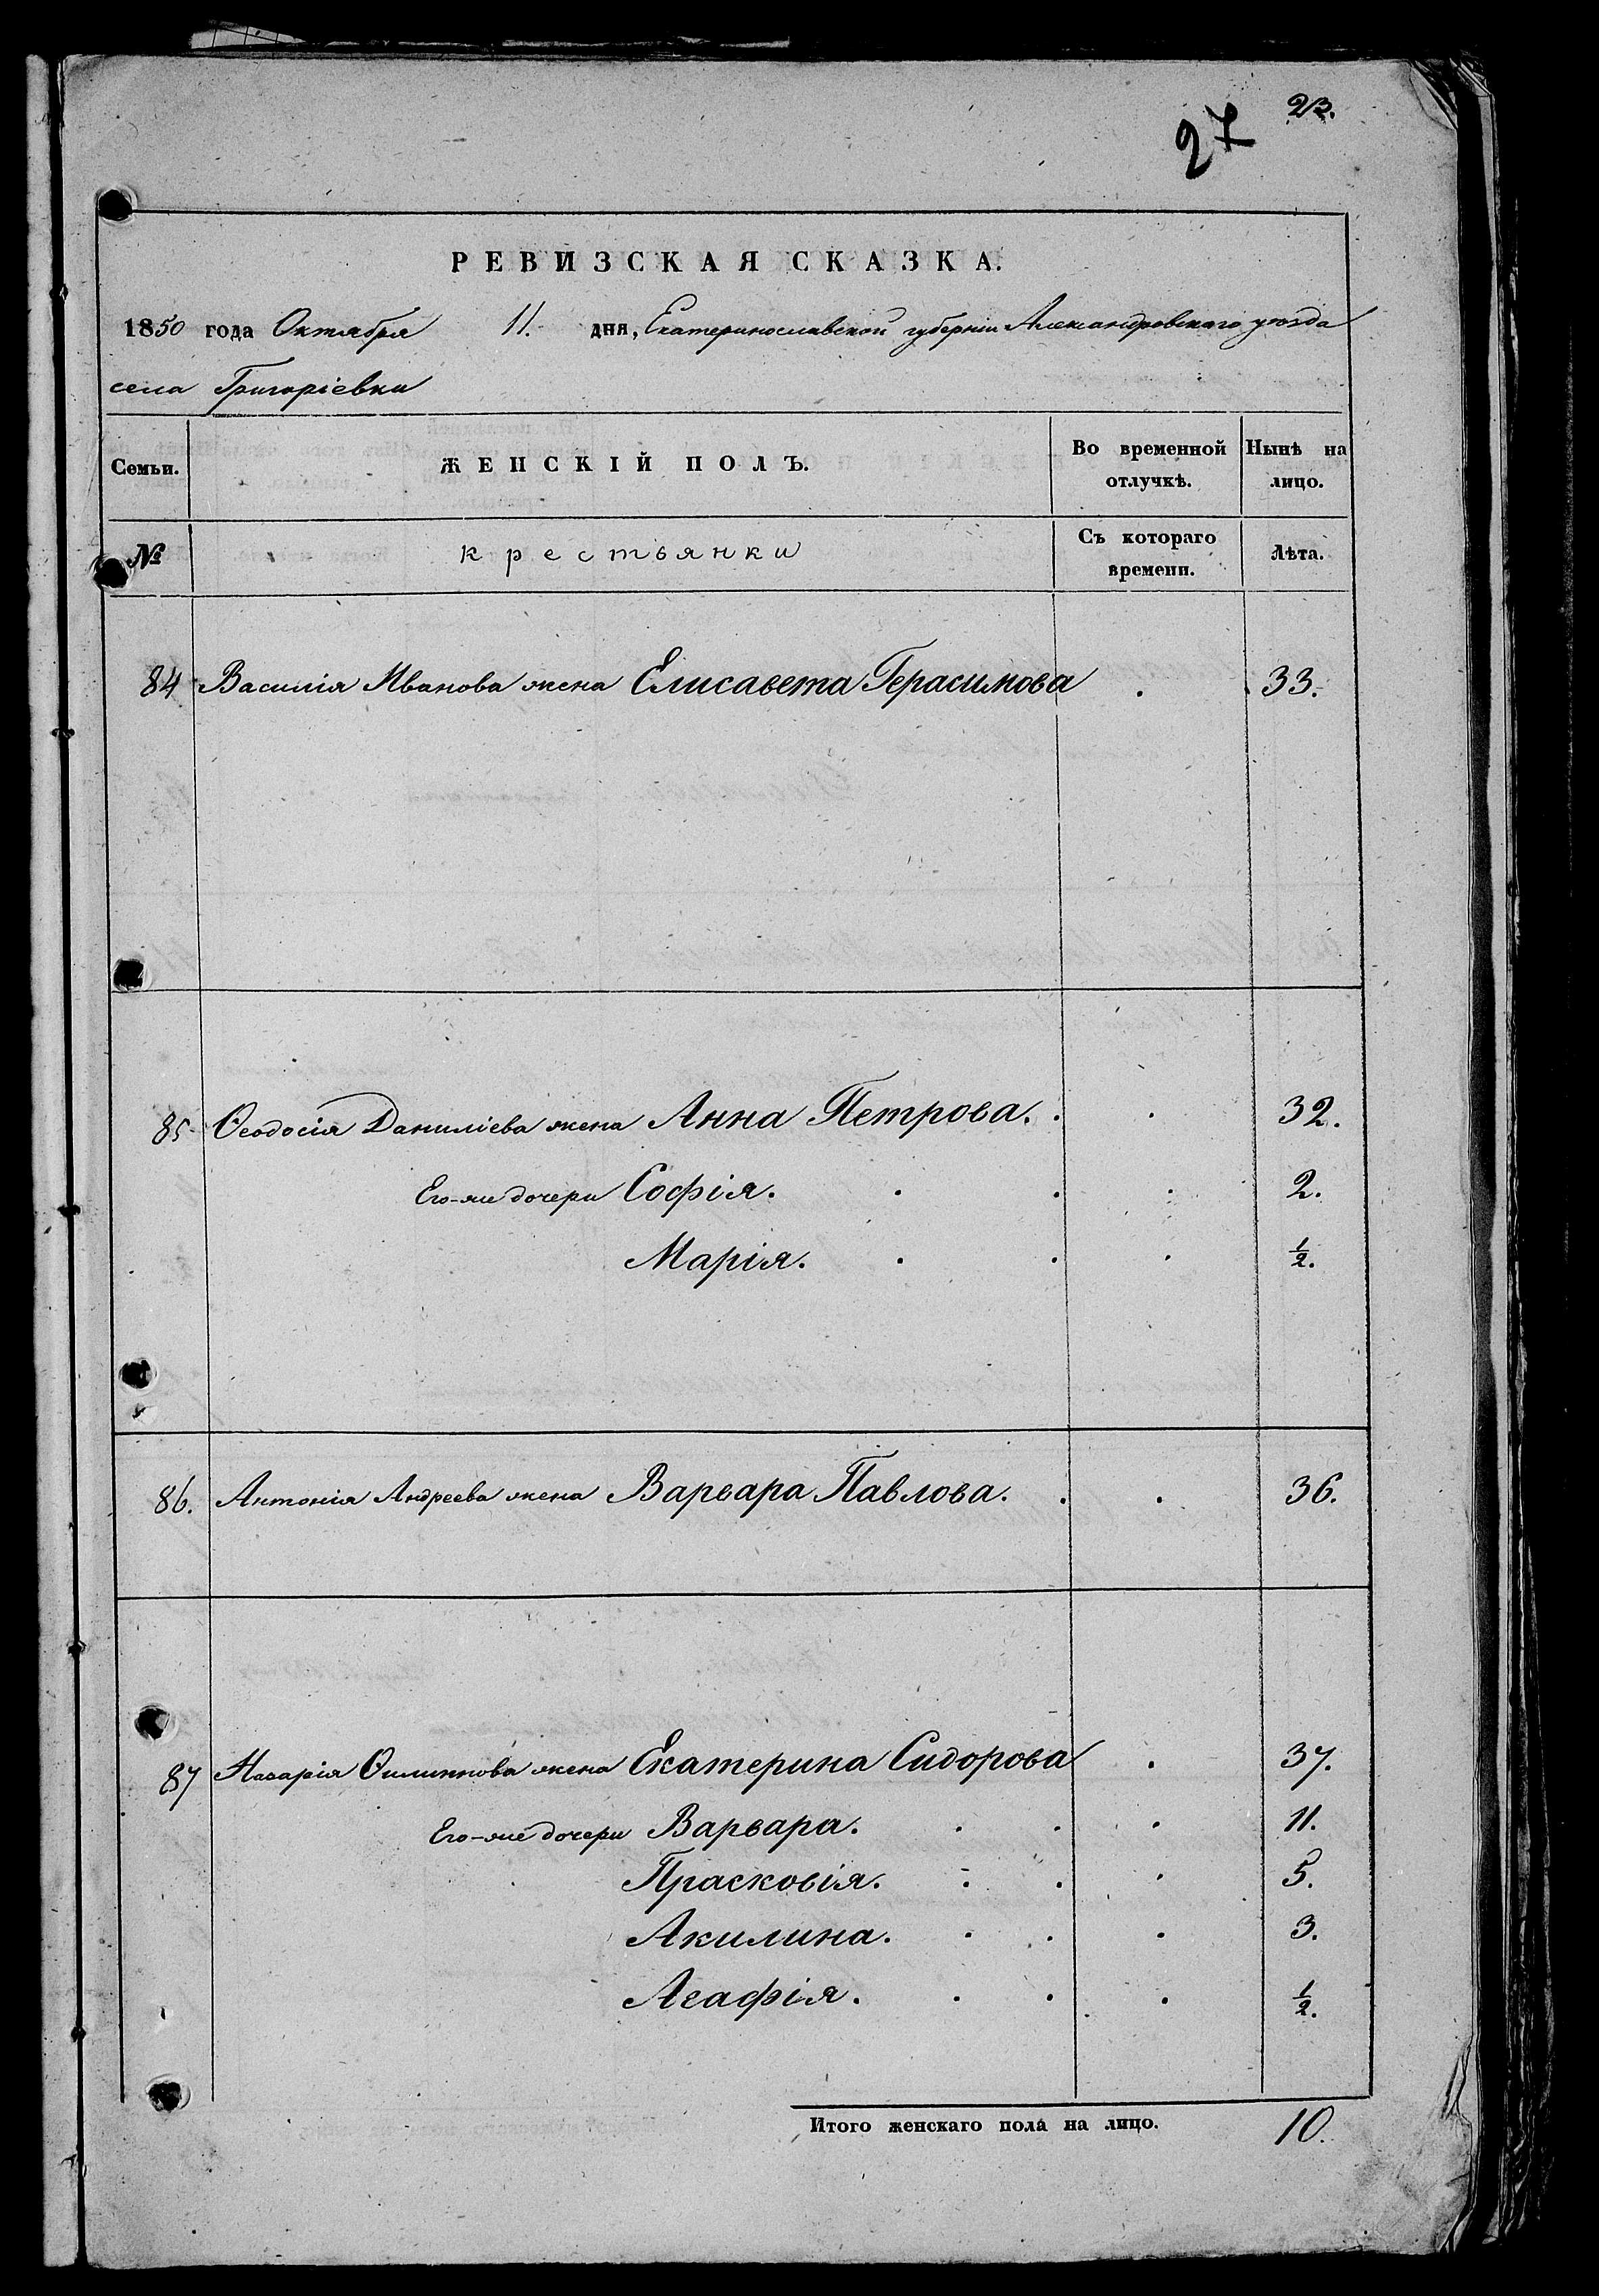 23.
27
РЕВИЗСКАЯ СКАЗКА.
1850 года Октября 11. дня, Екатеринославской губерніи Александровскаго уѣзда
села Григоріевки
Семьи. ЖЕНСКІЙ ПОЛЪ. Во временной отлучкѣ. Нынѣ на лицо.
№ крестьянки Съ котораго времени. Лѣта.
84 Василія Иванова жена Елисавета Герасимова . 33.
85 Ѳеодосія Даниліева жена Анна Петрова. . . 32.
Его-же дочери Софія. . . . 2.
Марія. . . . ½.
86. Антонія Андреева жена Варвара Павлова. . . 36.
87 Назарія Ѳилиппова жена Екатерина Сидорова . 37.
Его-же дочери Варвара. . . . 11.
Прасковія. . . . 5.
Акилина. . . . 3.
Агафія. . . . ½.
Итого женскаго пола на лицо. 10.